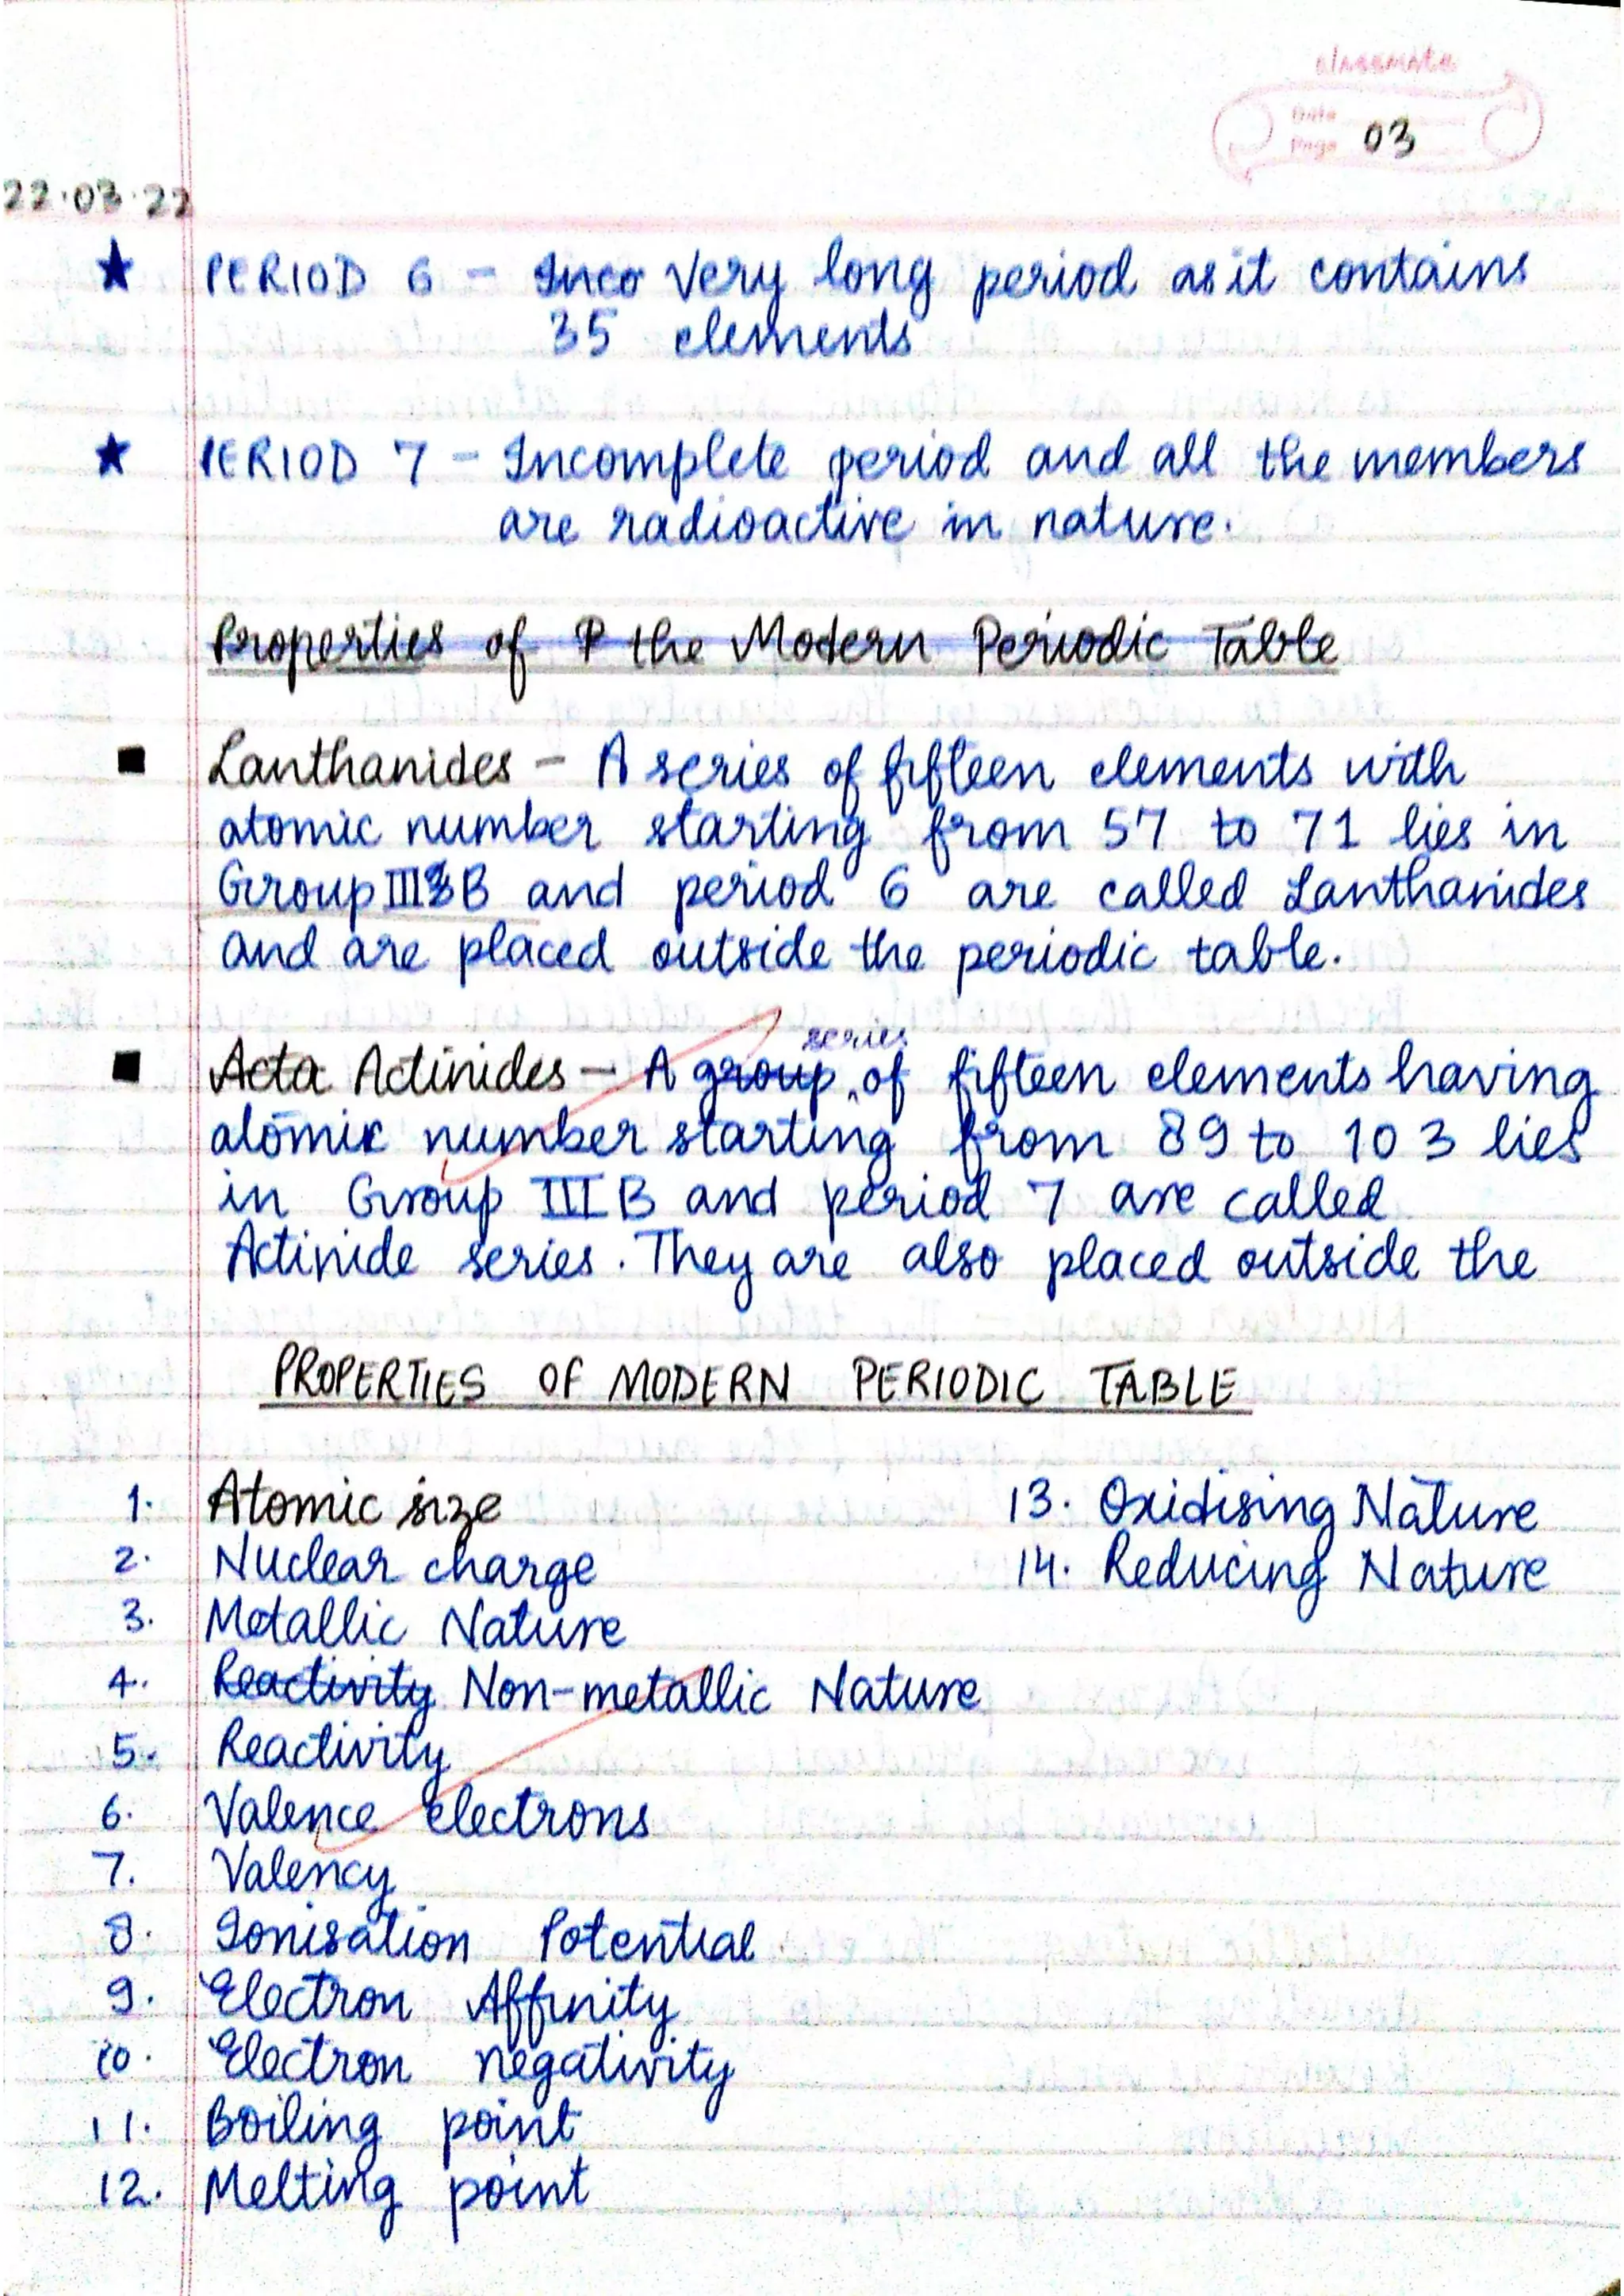 classmate
Date
Page 03
22.03.22
★ PERIOD 6 - Inco Very long period as it contains
35 elements
★ PERIOD 7 - Incomplete period and all the members
are radioactive in nature.
Properties of P the Modern Periodic Table
■ Lanthanides - A series of fifteen elements with
atomic number starting from 57 to 71 lies in
Group III B and period 6 are called Lanthanides
and are placed outside the periodic table.
series
■ Acta Actinides - A group of fifteen elements having
atomic number starting from 89 to 103 lies
in Group III B and period 7 are called
Actinide series. They are also placed outside the
PROPERTIES OF MODERN PERIODIC TABLE
1. Atomic size
2. Nuclear charge
3. Metallic Nature
4. Reactivity Non-metallic Nature
5. Reactivity
6. Valence electrons
7. Valency
8. Ionisation Potential
9. Electron Affinity
10. Electron negativity
11. Boiling point
12. Melting point
13. Oxidising Nature
14. Reducing Nature